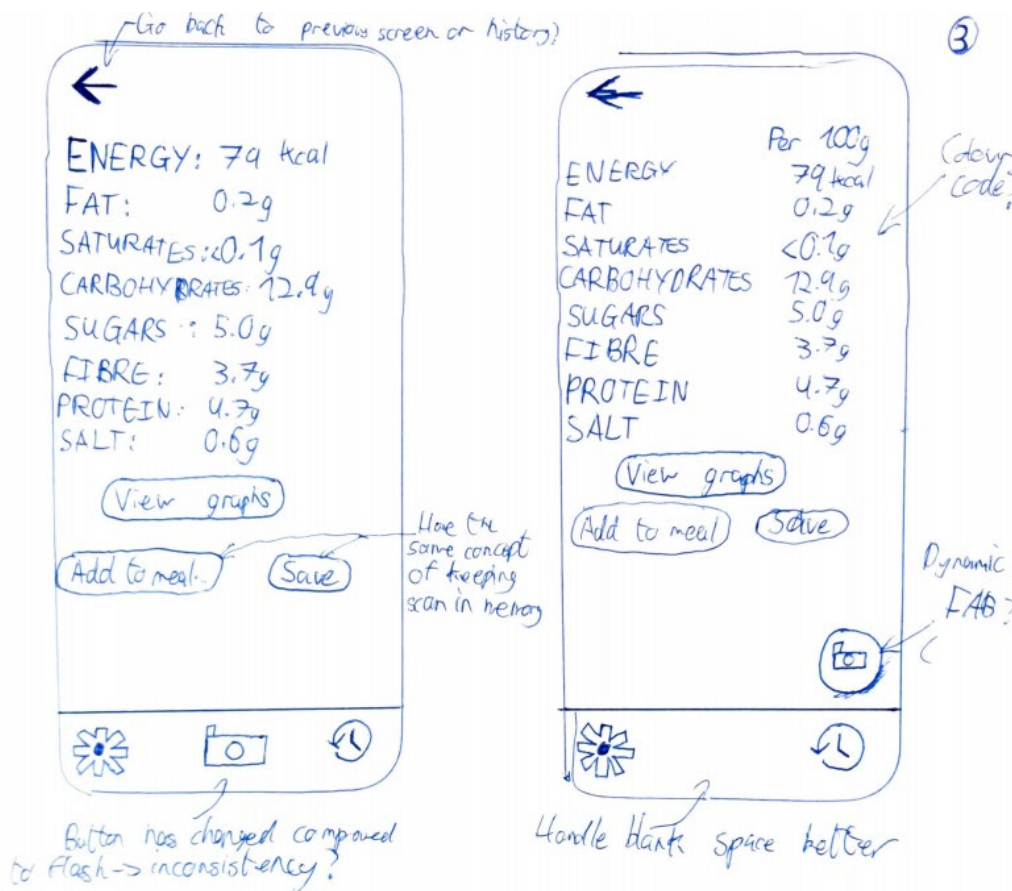 Go back to previous screen or history?
③
ENERGY: 79 kcal
FAT: 0.2g
SATURATES: <0.1g
CARBOHYDRATES: 12.9g
SUGARS: 5.0g
FIBRE: 3.7g
PROTEIN: 4.7g
SALT: 0.6g
View graphs
Add to meal..
Save
Have the
same concept
of keeping
scan in memory
Button has changed compared
to flash -> inconsistency?
Per 100g
ENERGY 79 kcal
FAT 0.2g
SATURATES <0.1g
CARBOHYDRATES 12.9g
SUGARS 5.0g
FIBRE 3.7g
PROTEIN 4.7g
SALT 0.6g
View graphs
Add to meal
Save
Colour
code?
Dynamic
FAB?
Handle blank space better